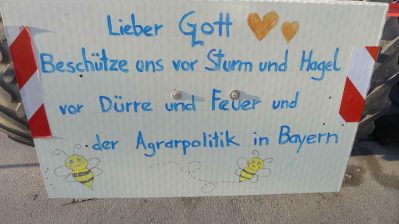 Lieber Gott
Beschütze uns vor Sturm und Hagel
vor Dürre und Feuer und
der Agrarpolitik in Bayern